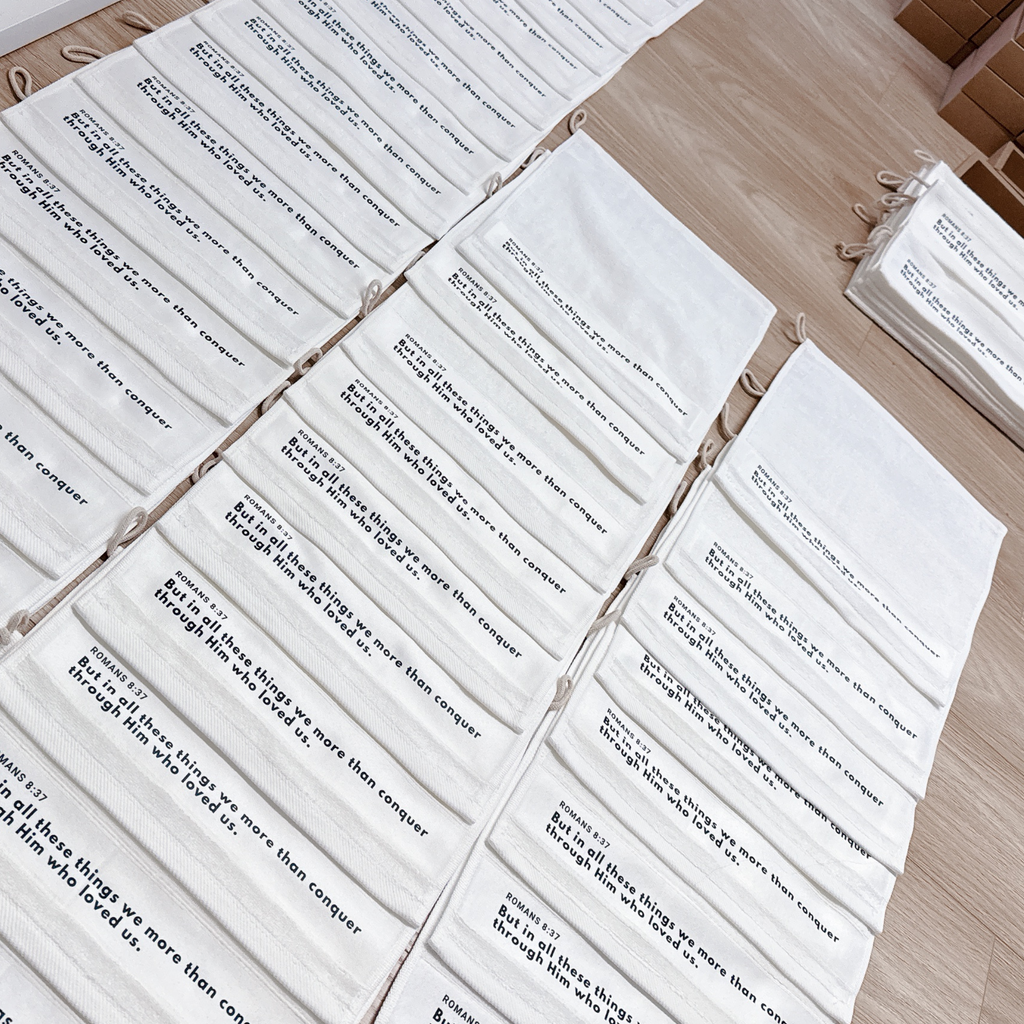 But in all these things we more than conquer
through Him who loved us.
ROMANS 8:37
But in all these things we more than conquer
through Him who loved us.
ROMANS 8:37
But in all these things we more than conquer
through Him who loved us.
ROMANS 8:37
But in all these things we more than conquer
through Him who loved us.
ROMANS 8:37
But in all these things we more than conquer
through Him who loved us.
these things we more than conquer
who loved us.
than conquer
ROMANS 8:37
all these things we more than conquer
ROMANS 8:37
But in all these things we more than conquer
through Him who loved us.
ROMANS 8:37
But in all these things we more than conquer
through Him who loved us.
ROMANS 8:37
But in all these things we more than conquer
through Him who loved us.
ROMANS 8:37
But in all these things we more than conquer
through Him who loved us.
ROMANS 8:37
But in all these things we more than conquer
through Him who loved us.
ROMANS 8:37
But in all these things we more than conquer
through Him who loved us.
ROMANS 8:37
But in all these things we more than con
through Him who loved us.
8:37
in all these things we more than conquer
Him who loved us.
ROMANS 8:37
in all these things we more than conquer
ROMANS 8:37
But in all these things we more than conquer
through Him who loved us.
ROMANS 8:37
But in all these things we more than conquer
through Him who loved us.
But in all these things we more than conquer
through Him who loved us.
ROMANS 8:37
But in all these things we more than conquer
through Him who loved us.
ROMANS 8:37
But in all these things we more than conq
through Him who loved us.
ROMANS 8:37
But in all these things we
through Him who loved us.
ROMANS 8:37
But in all
ROMANS 8:37
But in all these things we m
through Him who loved us.
ROMANS 8:37
But in all these things we more than
through Him who loved us.